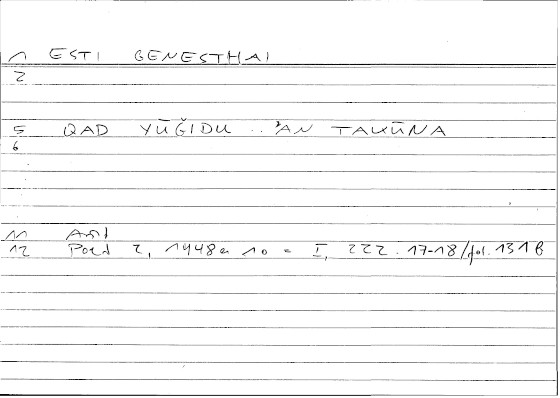 1 ESTI GENESTHAI
2
5 QAD YŪǦIDU .. ʾAN TAKŪNA
6
11 Arist
12 Poet 2, 1448a 10 = I, 222.17-18/fol. 131b